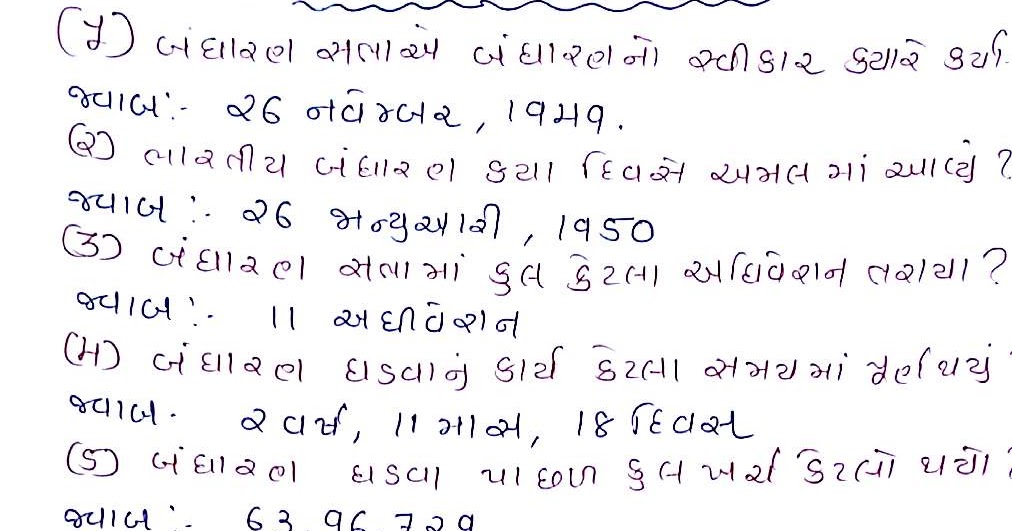 (૧) બંધારણ સભાએ બંધારણનો સ્વીકાર ક્યારે કર્યો
જવાબ:- ૨6 નવેમ્બર, 1949.
(૨) ભારતીય બંધારણ કયા દિવસે અમલ માં આવ્યું ?
જવાબ :- ૨6 જાન્યુઆરી, 1950
(૩) બંધારણ સભામાં કુલ કેટલા અધિવેશન ભરાયા ?
જવાબ :- 11 અધીવેશન
(૪) બંધારણ ઘડવાનું કાર્ય કેટલા સમયમાં પૂર્ણ થયું ?
જવાબ - ૨ વર્ષ, 11 માસ, 18 દિવસ
(5) બંધારણ ઘડવા પાછળ કુલ ખર્ચ કેટલો થયો ?
જવાબ :- 63,96,729